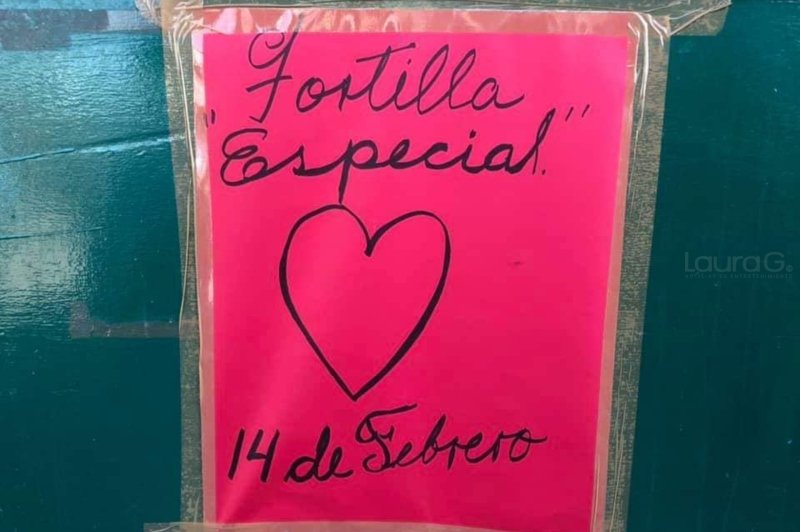 Tortilla
"Especial."
14 de Febrero
Laura G.